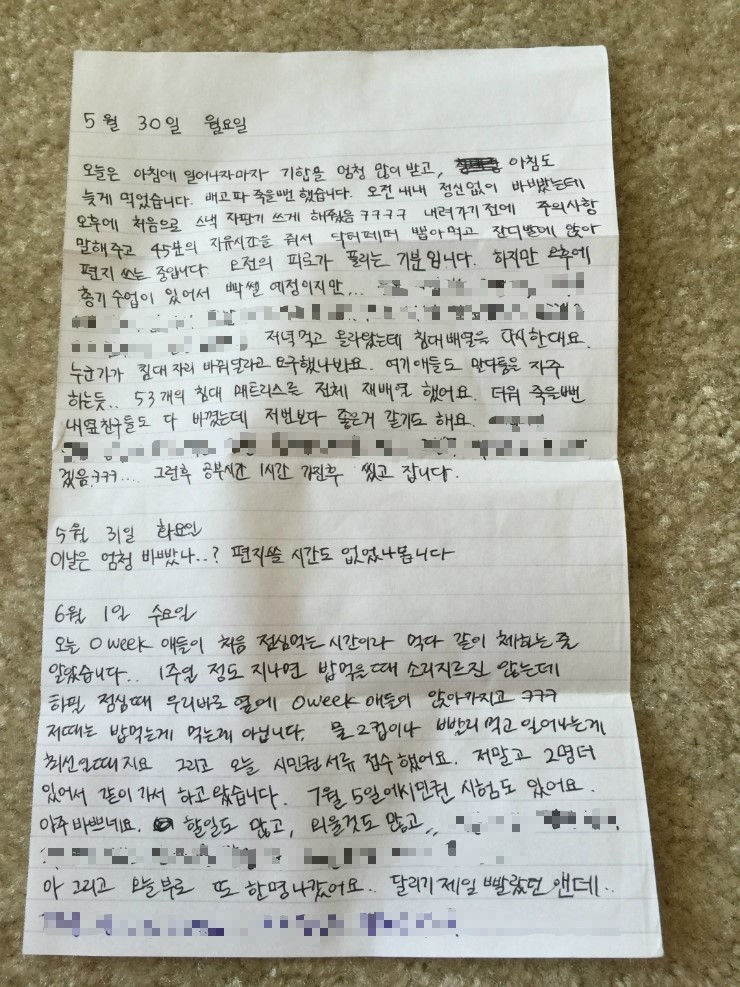 5월 30일 월요일
오늘은 아침에 일어나자마자 기합을 엄청 많이 받고, 아침도
늦게 먹었습니다. 배고파 죽을뻔 했습니다. 오전 내내 정신없이 바빴는데
오후에 처음으로 스낵 자판기 쓰게 해줬음 ㅋㅋㅋㅋ 내려가기 전에 주의사항
말해주고 45분의 자유시간을 줘서 닥터페퍼 뽑아먹고 잔디밭에 앉아
편지 쓰는 중입니다 오전의 피로가 풀리는 기분입니다. 하지만 오후에
총기수업이 있어서 빡쎌 예정이지만,...
저녁먹고 올라왔는데 침대배열을 다시한대요.
누군가가 침대 자리 바꿔달라고 요구했나봐요. 여기애들도 말다툼은 자주
하는듯.. 53개의 침대 매트리스를 전체 재배열 했어요. 더워 죽을뻔
내옆친구들도 다 바꼈는데 저번보다 좋은거 같기도 해요.
겠음.ㅋㅋㅋ... 그런후 공부시간 1시간 가진후 씻고 잡니다.
5월 31일 화요일
이날은 엄청 바빴나..? 편지쓸 시간도 없었나봅니다
6월 1일 수요일
오늘 0 week 애들이 처음 점심먹는 시간이라 먹다 같이 체하는줄
알았습니다.. 1주일 정도 지나면 밥먹을때 소리지르진 않는데
하필 점심때 우리바로 옆에 0week 애들이 앉아가지고 ㅋㅋㅋ
저때는 밥먹는게 먹는게 아닙니다. 물2컵이나 빨리먹고 일어나는게
최선일때지요 그리고 오늘 시민권서류 접수했어요. 저말고 2명더
있어서 같이가서 하고왔습니다. 7월 5일에시민권 시험도 있어요.
아주바쁘네요. 할일도 많고, 외울것도 많고..
아 그리고 오늘부로 또 한명나갔어요.. 달리기 제일 빨랐던 앤데..